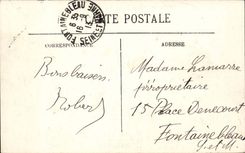 CARTE POSTALE
FONTAINEBLEAU
SEINE-ET-M
CORRESPONDANCE
ADRESSE
Bons baisers
Robert
Madame Lamarre
propriétaire
15 Place Denecourt
Fontainebleau
S et M